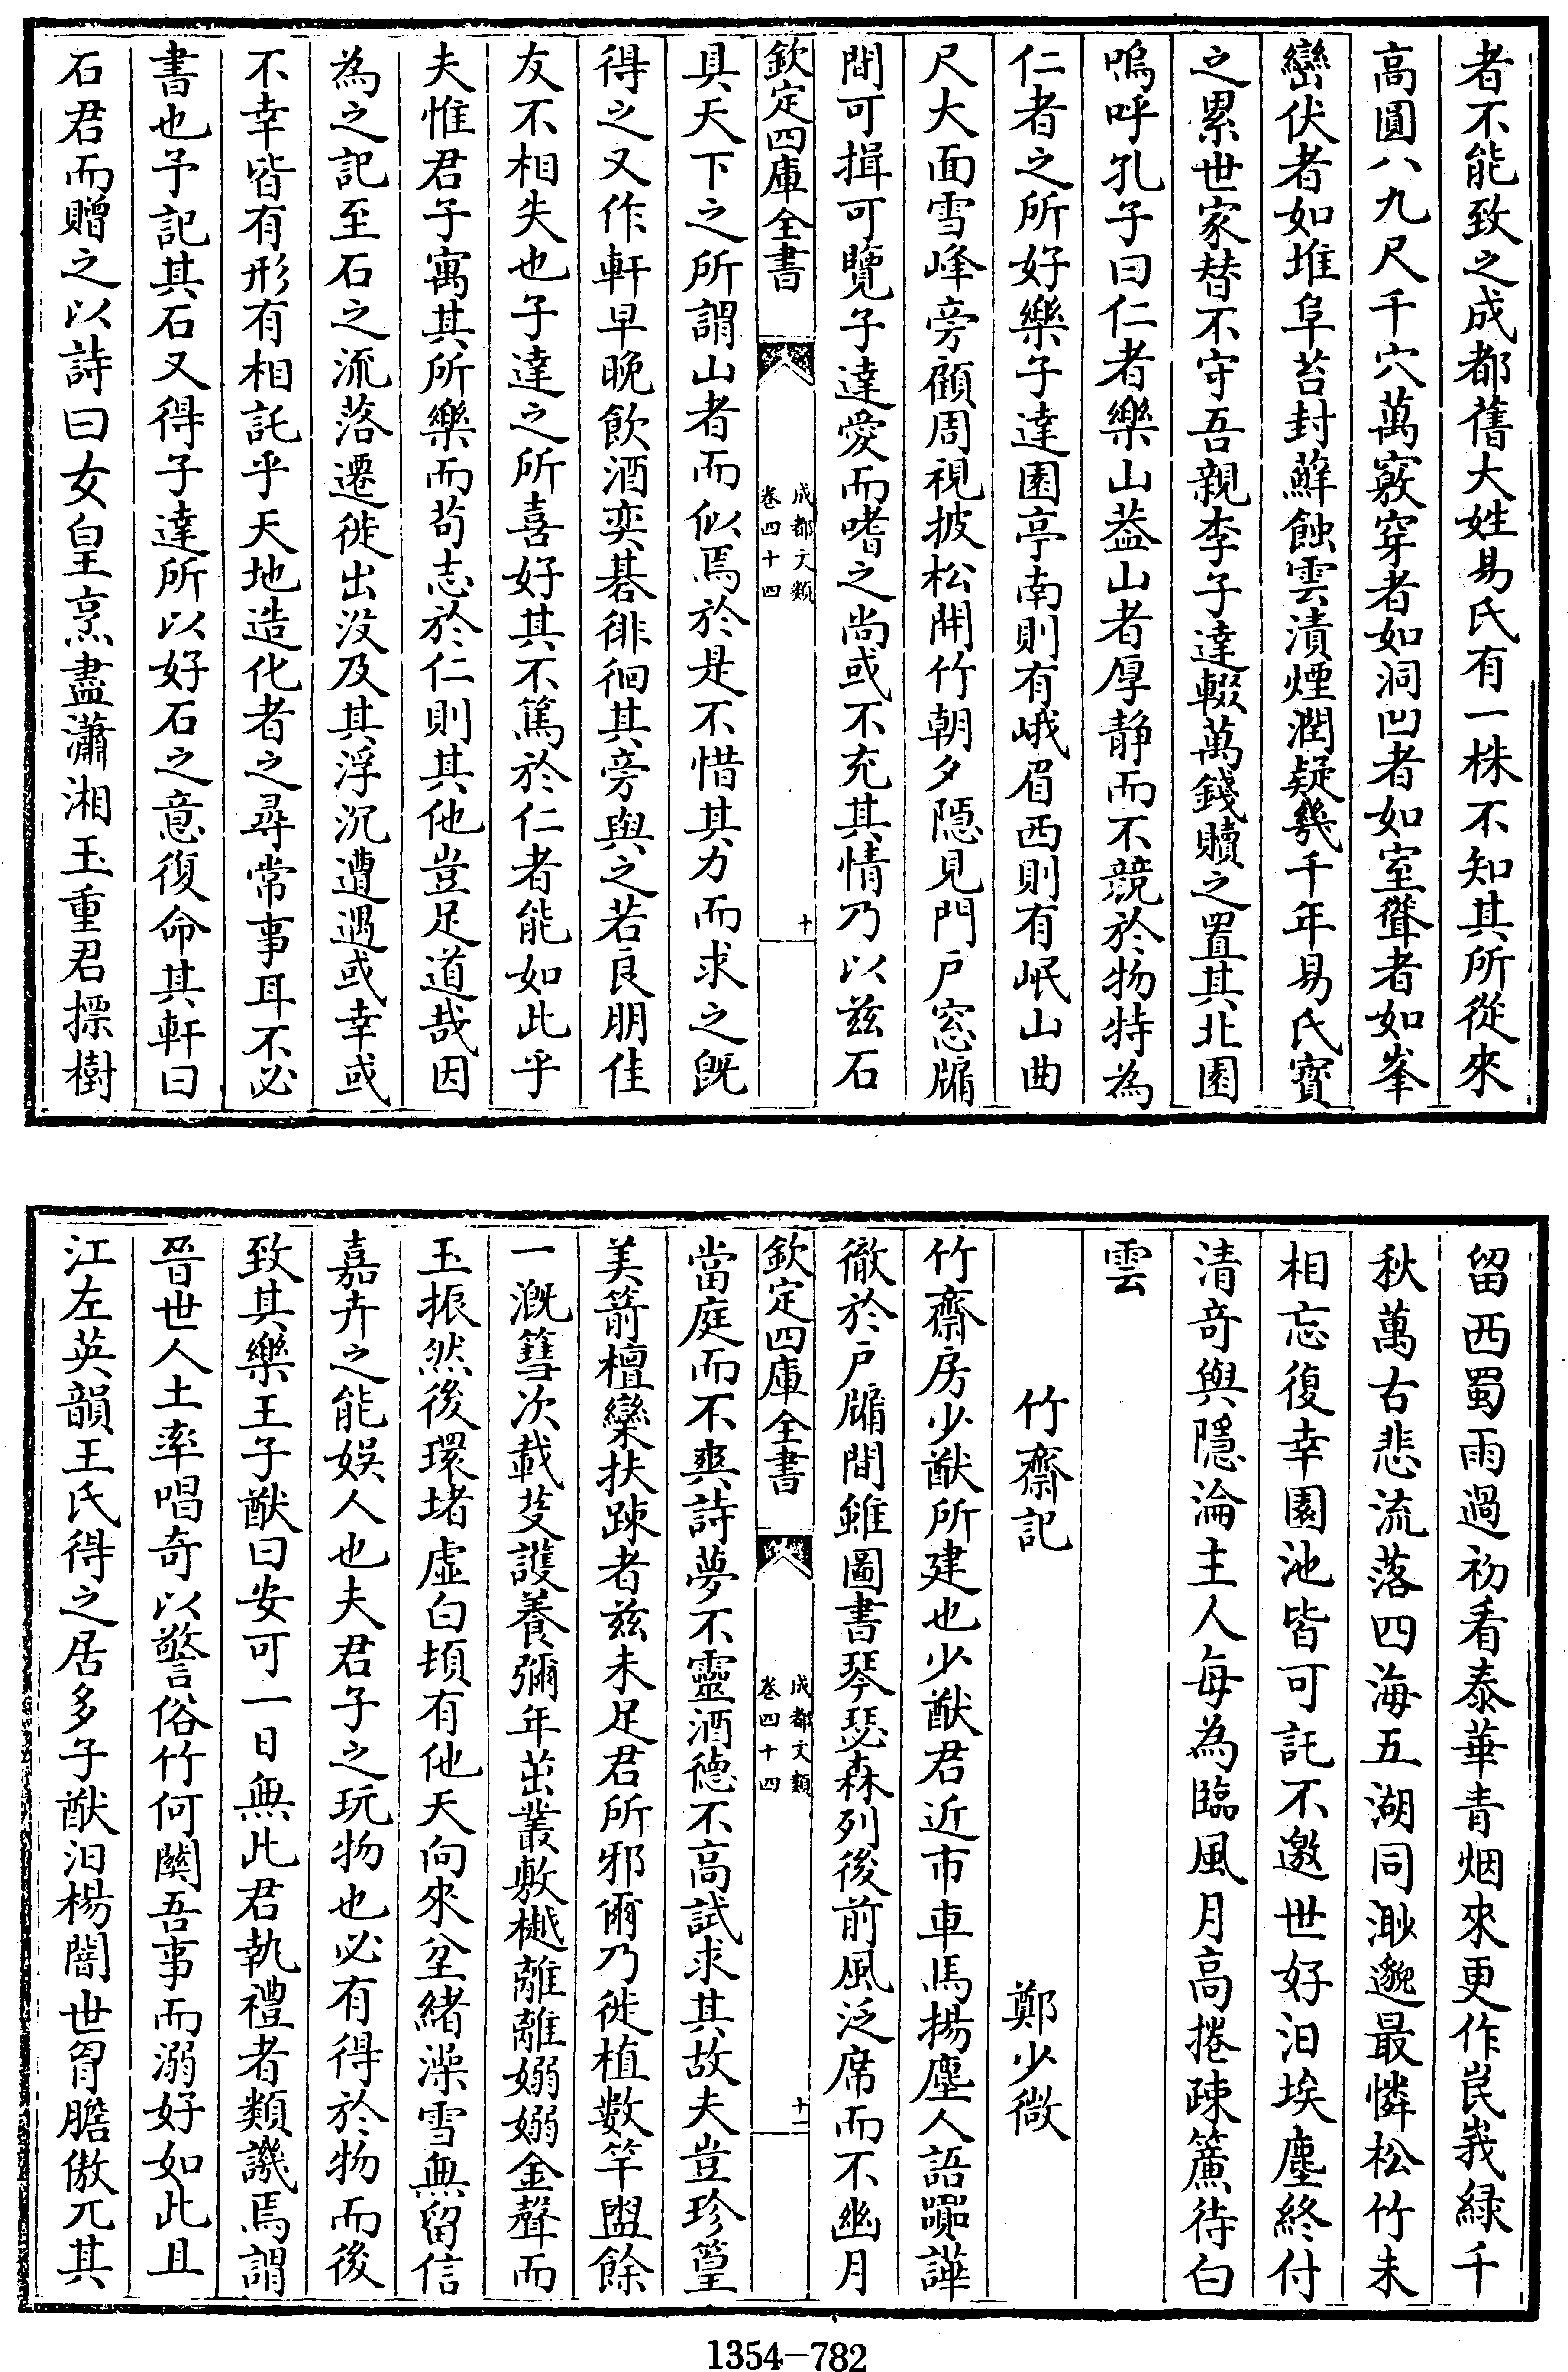 者不能致之成都舊大姓易氏有一株不知其所從來
高圓八九尺千穴萬竅穿者如洞凹者如室聳者如峯
巒伏者如堆阜苔封蘚蝕雲漬煙潤疑幾千年易氏寳
之累世家替不守吾親李子達輟萬錢贖之置其北園
嗚呼孔子曰仁者樂山葢山者厚静而不競於物特為
仁者之所好樂子達園亭南則有峨眉西則有岷山曲
尺大面雪峰旁顧周視披松開竹朝夕隱見門戶窓牖
間可揖可覽子達愛而嗜之尚或不充其情乃以兹石
欽定四庫全書
成都文類
卷四十四
十
具天下之所謂山者而似焉於是不惜其力而求之旣
得之又作軒早晚飲酒奕棊徘徊其旁與之若良朋佳
友不相失也子達之所喜好其不篤於仁者能如此乎
夫惟君子寓其所樂而苟志於仁則其他豈足道哉因
為之記至石之流落遷徙出没及其浮沉遭遇或幸或
不幸皆有形有相託乎天地造化者之尋常事耳不必
書也予記其石又得子達所以好石之意復命其軒曰
石君而贈之以詩曰女皇烹盡瀟湘玉重君摽樹
留西蜀雨過初看泰華青烟來更作峩緑千
秋萬古悲流落四海五湖同渺邈最憐松竹未
相忘復幸園池皆可託不邀世好汨埃塵終付
清奇與隱淪主人每為臨風月高捲疎簾待白
雲
竹齋記
鄭少微
竹齋房少猷所建也少猷君近市車馬揚塵人語嘂譁
徹於戶牖間雖圖書琴瑟森列後前風泛席而不幽月
欽定四庫全書
成都文類
卷四十四
十一
當庭而不爽詩夢不靈酒德不高試求其故夫豈珍篁
美箭檀欒扶疎者兹未足君所邪爾乃徙植數竿盥餘
一溉篲次載芟護養彌年茁叢敷樾離離嫋嫋金聲而
玉振然後環堵虛白頓有他天向來坌緒澡雪無留信
嘉卉之能娱人也夫君子之玩物也必有得於物而後
致其樂王子猷曰安可一日無此君執禮者類譏焉謂
晉世人土率唱奇以警俗竹何闗吾事而溺好如此且
江左英韻王氏得之居多子猷汨楊闇世胷膽傲兀其
1354-782